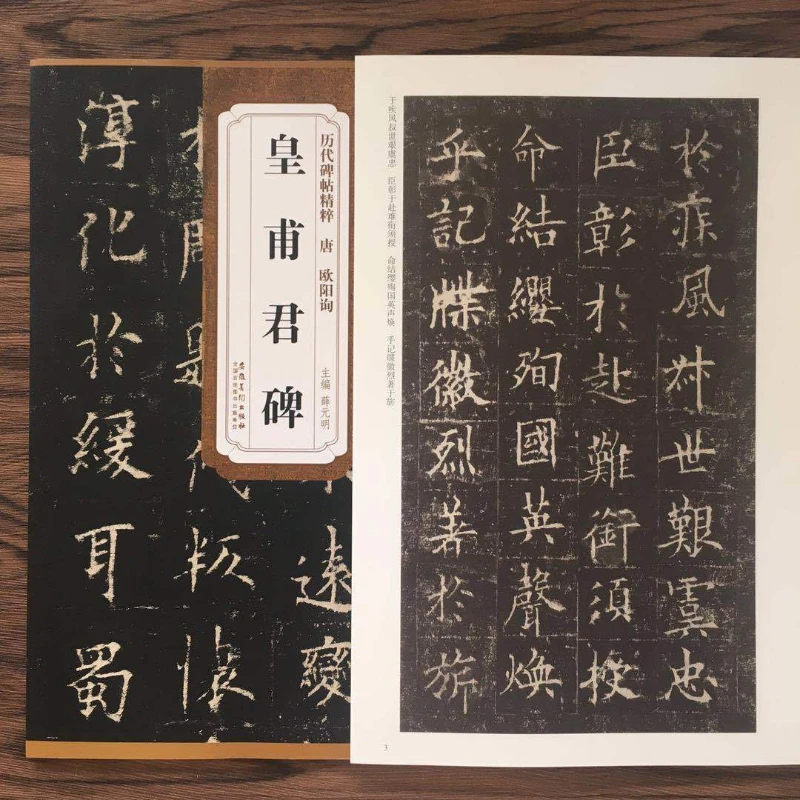 历代碑帖精粹 唐 欧阳询
皇甫君碑
主编 薛元明
安徽美术出版社
薄化於緩耳蜀
叛懷
遠變
於疾風叔世艱虞忠
臣彰於赴難銜須授
命結纓殉國英聲煥
乎記牒徽烈著於旂
于疾风叔世艰虞忠 臣彰于赴难衔须授 命结缨殉国英声焕 乎记牒徽烈著于旂
3